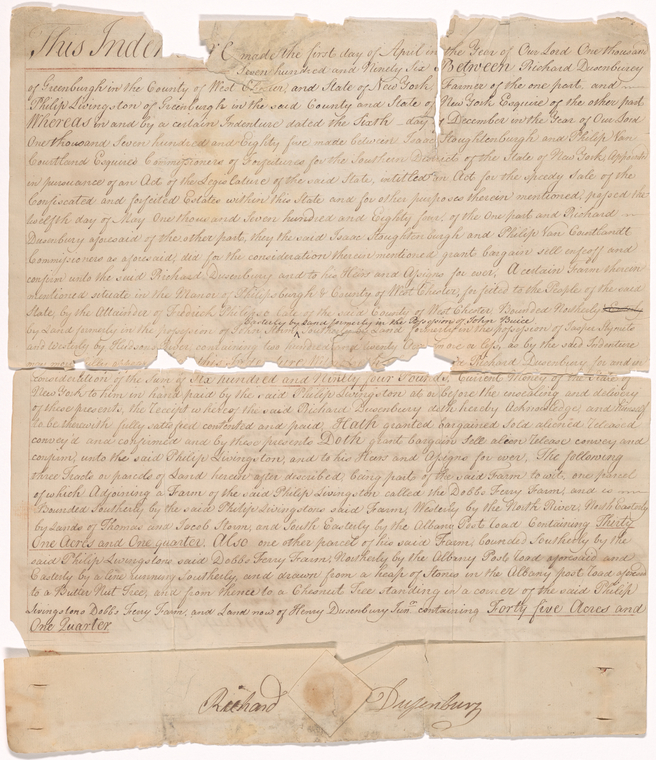 This Inden re made the first day of April in the Year of Our Lord One thousand
Seven hundred and Ninety Six Between Richard Dusenbury
of Greenburgh in the County of West Chester, and State of New York, Farmer of the one part, and
Philip Livingston of Greenburgh in the said County and State of New York Esquire of the other part
Whereas in and by a certain Indenture dated the Sixth day of December in the Year of Our Lord
One thousand Seven hundred and Eighty five made between Isaac Stoughtenburgh and Philip Van
Courtland Esquires Commissioners of Forfeitures for the Southern District of the State of New York, Appointed
in pursuance of an Act of the Legislature of the said State, intitled an Act for the Speedy Sale of the
Confiscated and forfeited Estates within this State and for other purposes therein mentioned, passed the
twelfth day of May One thousand Seven hundred and Eighty five, of the One part and Richard
Dusenbury aforesaid of the other part, they the said Isaac Stoughtenburgh and Philip Van Cortlandt
Commissioners as aforesaid, did for the consideration therein mentioned grant bargain sell enfeoff and
confirm unto the said Richard Dusenbury and to his Heirs and Assigns for ever, A certain Farm therein
mentioned situate in the Manor of Philipsburgh & County of West Chester, forfeited to the People of the said
State, by the Attainder of Fredrick Philipse late of the said County of West Chester Bounded Northerly
Easterly by Land formerly in the Possession of John
by Land formerly in the possession of Peter Storm in the possession of Jasper
and Westerly by Hudsons River containing two hundred and twenty Acres more or less, as by the said Indenture
Richard Dusenbury for and in
consideration of the Sum of Six hundred and Ninety four Pounds, Current Money of the State of
New York to him in hand paid by the said Philip Livingston at or before the ensealing and delivery
of these presents, the receipt whereof the said Richard Dusenbury doth hereby Acknowledge, and Himself
to be therewith fully satisfied contented and paid, Hath granted bargained Sold aliened released
convey'd and confirmed and by these presents Doth grant bargain Sell alien release convey and
confirm, unto the said Philip Livingston, and to his Heirs and Assigns for ever, The following
three Tracts or parcels of Land herein after described, being part of the said Farm to wit, one parcel
of which Adjoining a Farm of the said Philip Livingston called the Dobbs Ferry Farm, and is
Bounded Southerly by the said Philip Livingstons said Farm, Westerly by the North River, North Easterly
by Lands of Thomas and Jacob Storm, and South Easterly by the Albany Post Road Containing Thirty
One Acres and One quarter. Also one other parcel of his said Farm, bounded Southerly by the
said Philip Livingstons said Dobbs Ferry Farm, Northerly by the Albany Post Road aforesaid and
Easterly by a line running Southerly, and drawn from a heap of Stones in the Albany post Road aforesaid
to a Butter Nut Tree, and from thence to a Chesnut Tree standing in a corner of the said Philip
Livingstons Dobbs Ferry Farm, and Land now of Henry Dusenbury Junr. containing Forty five Acres and
One Quarter
Richard Dusenbury